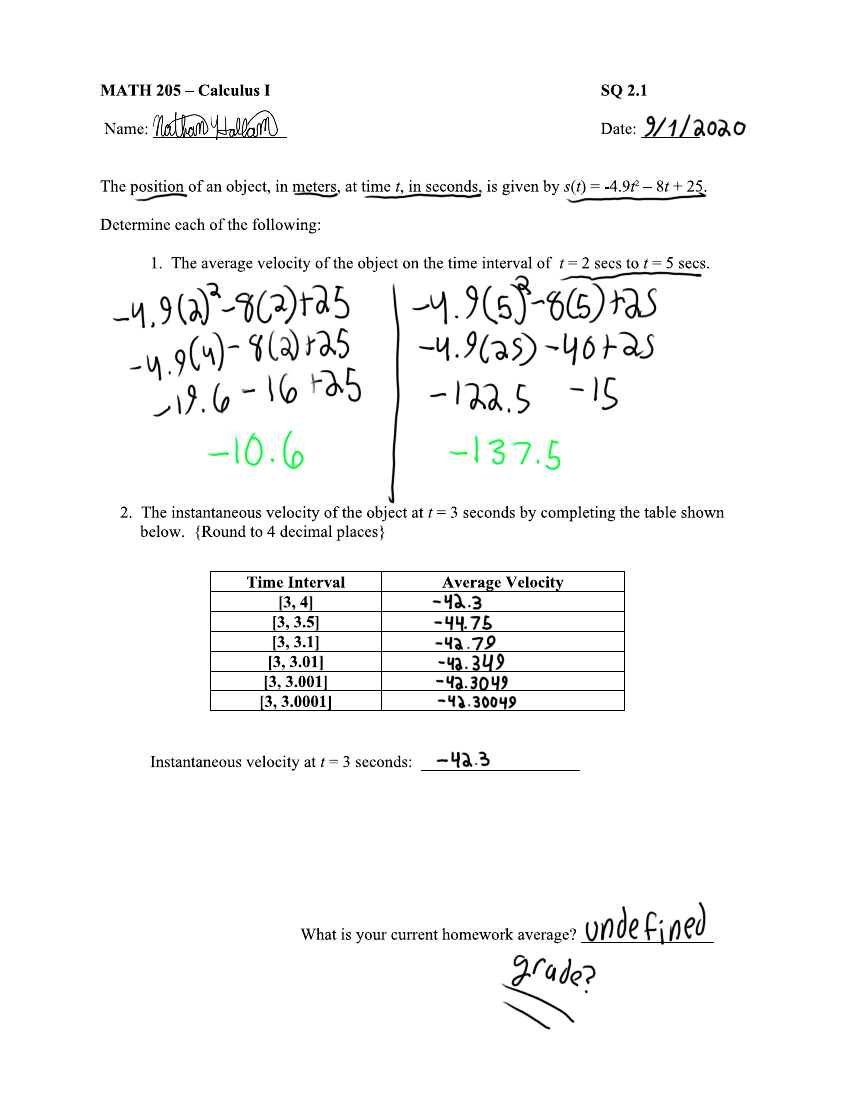 MATH 205 – Calculus I SQ 2.1
Name: Nathan Hallam Date: 9/1/2020
The position of an object, in meters, at time t, in seconds, is given by s(t) = -4.9t² – 8t + 25.
Determine each of the following:
1. The average velocity of the object on the time interval of t = 2 secs to t = 5 secs.
-4.9(2)²-8(2)+25 -4.9(5)²-8(5)+25
-4.9(4)-8(2)+25 -4.9(25)-40+25
-19.6-16+25 -122.5 -15
-10.6 -137.5
2. The instantaneous velocity of the object at t = 3 seconds by completing the table shown
below. {Round to 4 decimal places}
Time Interval Average Velocity
[3, 4] -42.3
[3, 3.5] -44.75
[3, 3.1] -42.79
[3, 3.01] -42.349
[3, 3.001] -42.3049
[3, 3.0001] -42.30049
Instantaneous velocity at t = 3 seconds: -42.3
What is your current homework average? undefined
grade?